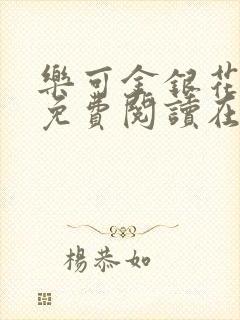 樂可金銀花
免費閱讀在
楊恭如